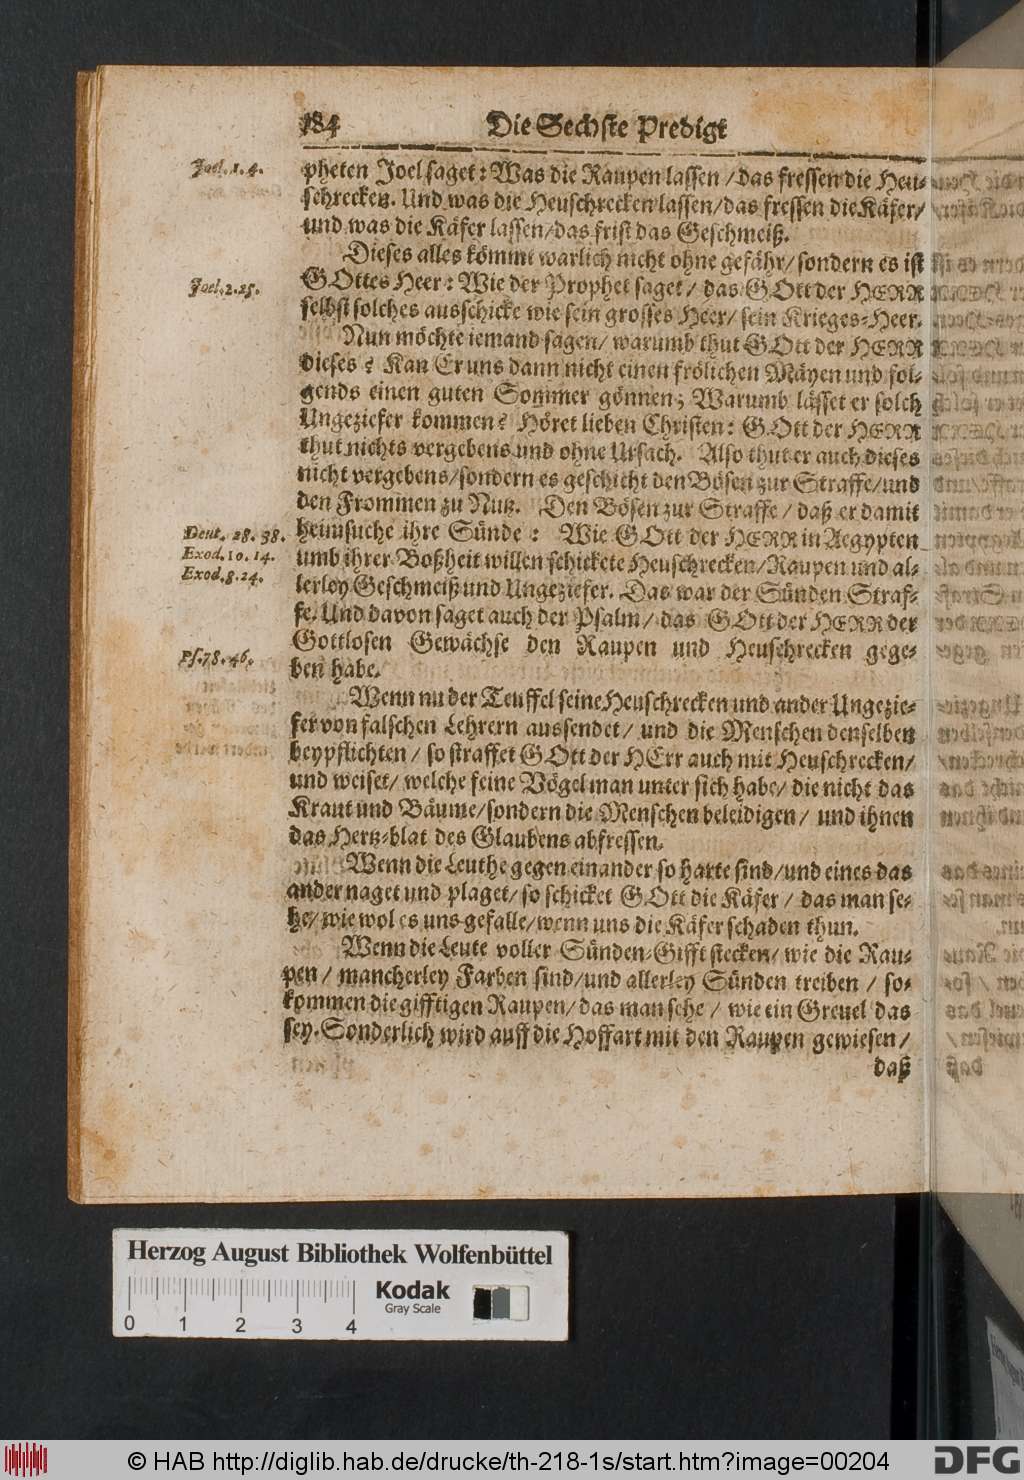 184 Die Sechste Predigt
Joel. 1. 4.
pheten Joel saget: Was die Raupen lassen / das fressen die Heu-
schrecken. Und was die Heuschrecken lassen / das fressen die Käfer /
und was die Käfer lassen / das frist das Geschmeiß.
Dieses alles kömmt warlich nicht ohne gefähr / sondern es ist
Joel. 2. 25.
GOttes Heer: Wie der Prophet saget / das GOtt der HERR
selbst solches ausschicke wie sein grosses Heer / sein Krieges-Heer.
Nun möchte iemand sagen / warumb thut GOtt der HERR
dieses? Kan Er uns dann nicht einen frölichen Mäyen und fol-
gends einen guten Sommer gönnen; Warumb lässet er solch
Ungeziefer kommen? Höret lieben Christen: GOtt der HERR
thut nichts vergebens und ohne Ursach. Also thut er auch dieses
nicht vergebens / sondern es geschicht den Bösen zur Straffe / und
den Frommen zu Nutz. Den Bösen zur Straffe / daß er damit
Deut. 28. 38.
heimsuche ihre Sünde: Wie GOtt der HERR in Aegypten
Exod. 10. 14.
umb ihrer Boßheit willen schickete Heuschrecken / Raupen und al-
Exod. 8. 24.
lerley Geschmeiß und Ungeziefer. Das war der Sünden Straf-
fe. Und davon saget auch der Psalm / das GOtt der HERR der
Gottlosen Gewächse den Raupen und Heuschrecken gege-
Ps. 78. 46.
ben habe.
Wenn nu der Teuffel seine Heuschrecken und ander Ungezie-
fer von falschen Lehrern aussendet / und die Menschen denselben
beypflichten / so straffet GOtt der HErr auch mit Heuschrecken /
und weiset / welche feine Vögel man unter sich habe / die nicht das
Kraut und Bäume / sondern die Menschen beleidigen / und ihnen
das Hertz-blat des Glaubens abfressen.
Wenn die Leuthe gegen einander so harte sind / und eines das
ander naget und plaget / so schicket GOtt die Käfer / das man se-
he / wie wol es uns gefalle / wenn uns die Käfer schaden thun.
Wenn die Leute voller Sünden-Gifft stecken / wie die Rau-
pen / mancherley Farben sind / und allerley Sünden treiben / so
kommen die gifftigen Raupen / das man sehe / wie ein Greuel das
sey. Sonderlich wird auff die Hoffart mit den Raupen gewiesen /
daß
Herzog August Bibliothek Wolfenbüttel
Kodak
Gray Scale
0 1 2 3 4
© HAB http://diglib.hab.de/drucke/th-218-1s/start.htm?image=00204
DFG